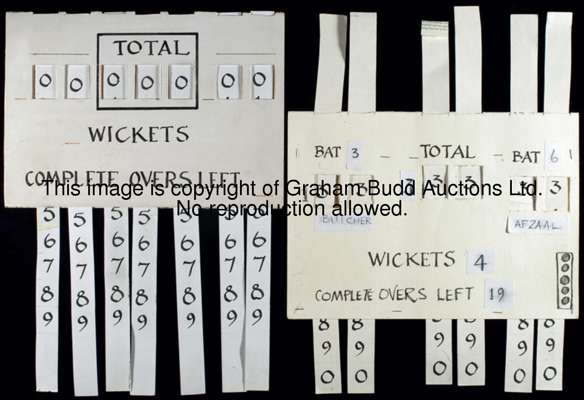 TOTAL
0 0 0 0 0 0 0
WICKETS
COMPLETE OVERS LEFT
5 5 5 5 5 5 5
6 6 6 6 6 6 6
7 7 7 7 7 7 7
8 8 8 8 8 8 8
9 9 9 9 9 9 9
BAT 3
TOTAL
BAT 6
3 3 3
BUTCHER
AFZAAL
WICKETS 4
COMPLETE OVERS LEFT 19
8 8 8 8 8 8
9 9 9 9 9 9
0 0 0 0 0 0
This image is copyright of Graham Budd Auctions Ltd.
No reproduction allowed.